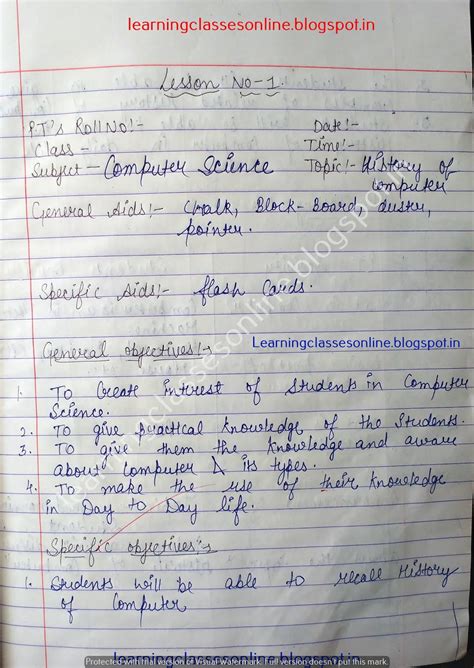 learningclassesonline.blogspot.in
Lesson No-1
P.T's Roll No!- Date!-
Class - Time!-
Subject - Computer Science Topic!- History of
computer
General Aids!- Chalk, Block-Board, duster,
pointer.
Specific Aids!- flash Cards.
General objectives!-
Learningclassesonline.blogspot.in
1. To Create interest of students in Computer
Science.
2. To give practical knowledge of the students.
3. To give them the knowledge and aware
about Computer & its types.
4. To make the use of their knowledge
in Day to Day life.
Specific objectives"-
1. Students will be able to recall History
of Computer
Protected with trial version of Visual Watermark. Full version doesn't put this mark.
learningclassesonline.blogspot.in